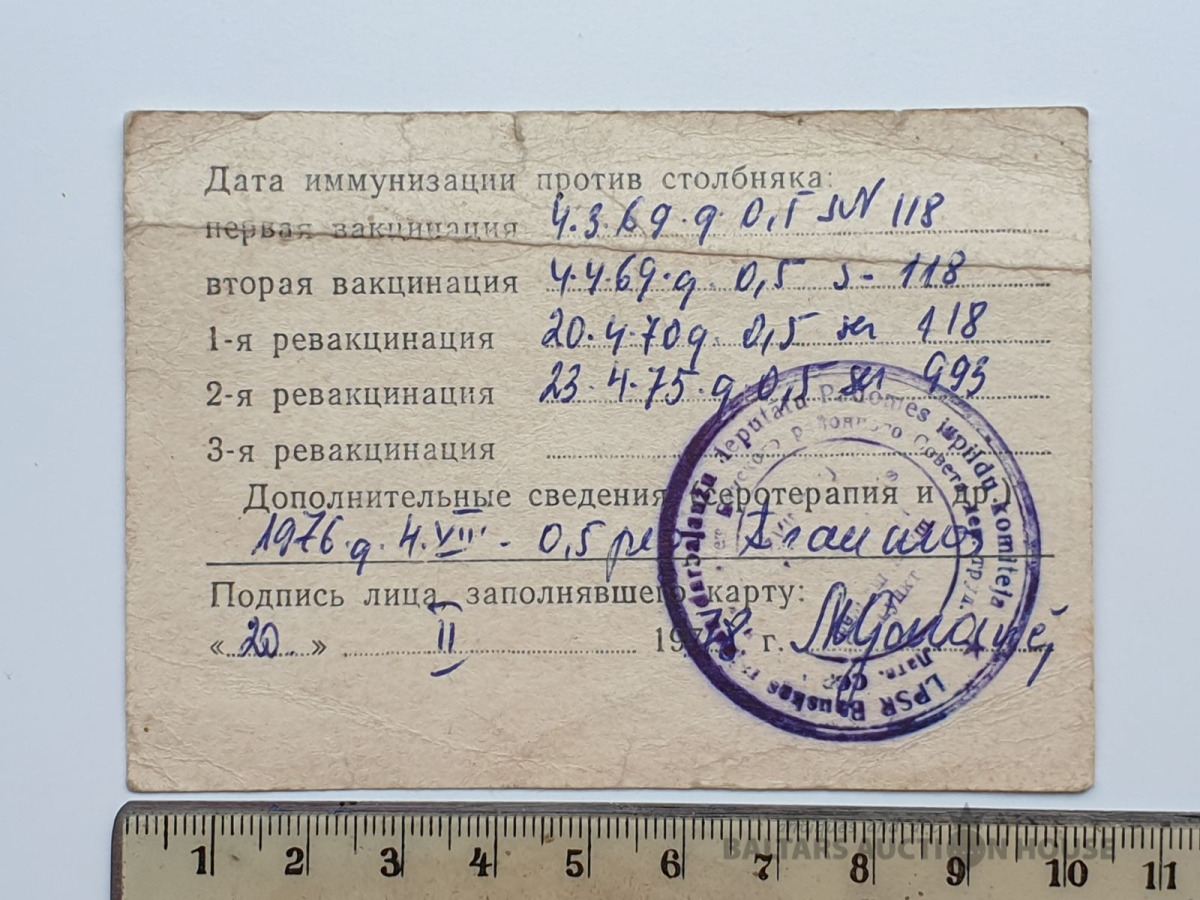 Дата иммунизации против столбняка:
первая вакцинация 4.3.69.g 0,5 sN 118
вторая вакцинация 4.4.69.g. 0,5 s- 118
1-я ревакцинация 20.4.70g. 0,5 ser 118
2-я ревакцинация 23.4.75.g 0,5 ser 993
3-я ревакцинация
Дополнительные сведения (серотерапия и др.)
1976.g. 4.VIII - 0,5
Подпись лица, заполнявшего карту:
«20» II 1978 г.
LPSR Bauskas darbaļaužu deputātu Padomes izpildu komiteja
районного Совета деп. труд.
Латв. ССР
1 2 3 4 5 6 7 8 9 10 11
BALTARS AUCTION HOUSE